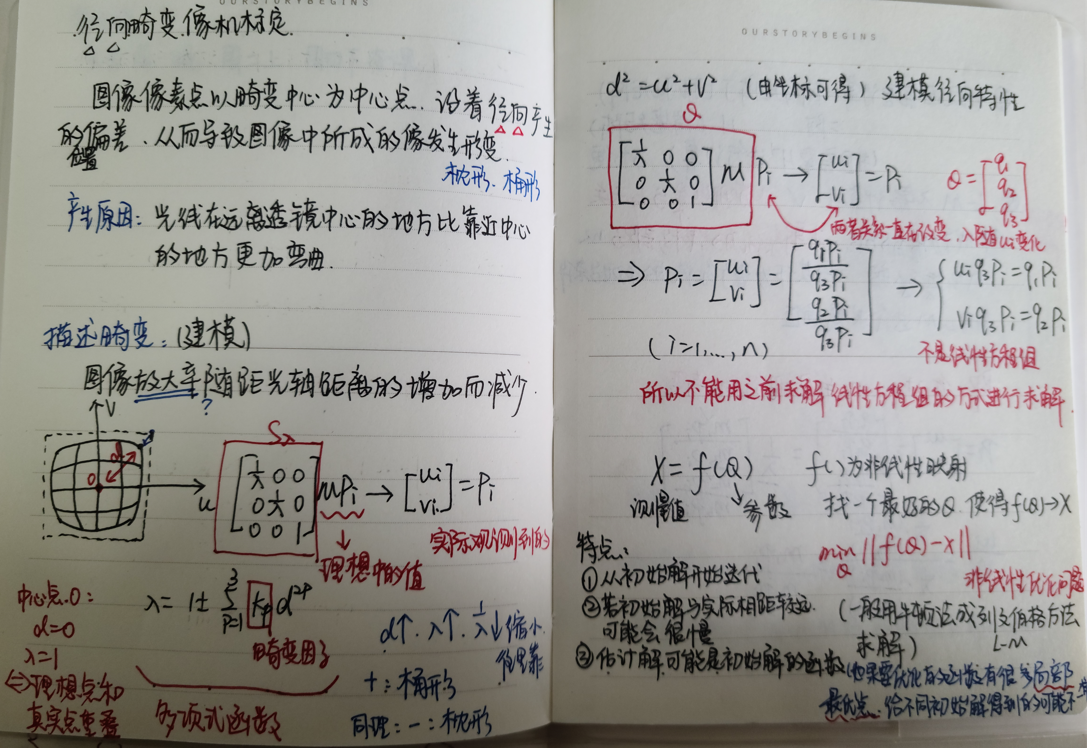 OURSTORYBEGINS
径向畸变.像机标定.
图像像素点以畸变中心为中心点.沿着径向产生
的位置偏差.从而导致图像中所成的像发生形变.
枕形.桶形
产生原因:光线在远离透镜中心的地方比靠近中心
的地方更加弯曲.
描述畸变:(建模)
图像放大率随距光轴距离的增加而减少.
?
v
d
0
u
Sλ
[1/λ 0 0; 0 1/λ 0; 0 0 1] MPi → [ui; vi] = Pi
理想中的值
实际观测到的
中心点.0:
d=0
λ=1
⇔理想点和
真实点重叠
λ = 1 ± Σ_{p=1}^{3} Kp d^{2p}
畸变因子
多项式函数
d↑.λ↑.1/λ↓缩小
往里靠
+:桶形
同理:一:枕形
OURSTORYBEGINS
d²=u²+v² (由坐标可得) 建模径向特性
Q
[1/λ 0 0; 0 1/λ 0; 0 0 1] M Pi → [ui; vi] = Pi
Q = [q1; q2; q3]
两者关系一直在改变.λ随ui变化
⇒ Pi = [ui; vi] = [q1Pi/q3Pi; q2Pi/q3Pi] → { ui q3 Pi = q1 Pi
vi q3 Pi = q2 Pi
(i=1,...,n)
不是线性方程组
所以不能用之前求解线性方程组的方式进行求解.
X = f(Q) f()为非线性映射
观测值 参数 找一个最好的Q 使得f(Q)→X
min_Q ||f(Q)-X||
非线性优化问题
特点:
①从初始解开始迭代
②若初始解与实际相距较远.
可能会很慢
(一般用牛顿法或列文伯格方法
求解) L-M
③估计解可能是初始解的函数(如果要优化的函数有很多局部
最优点.给不同初始解得到的可能不